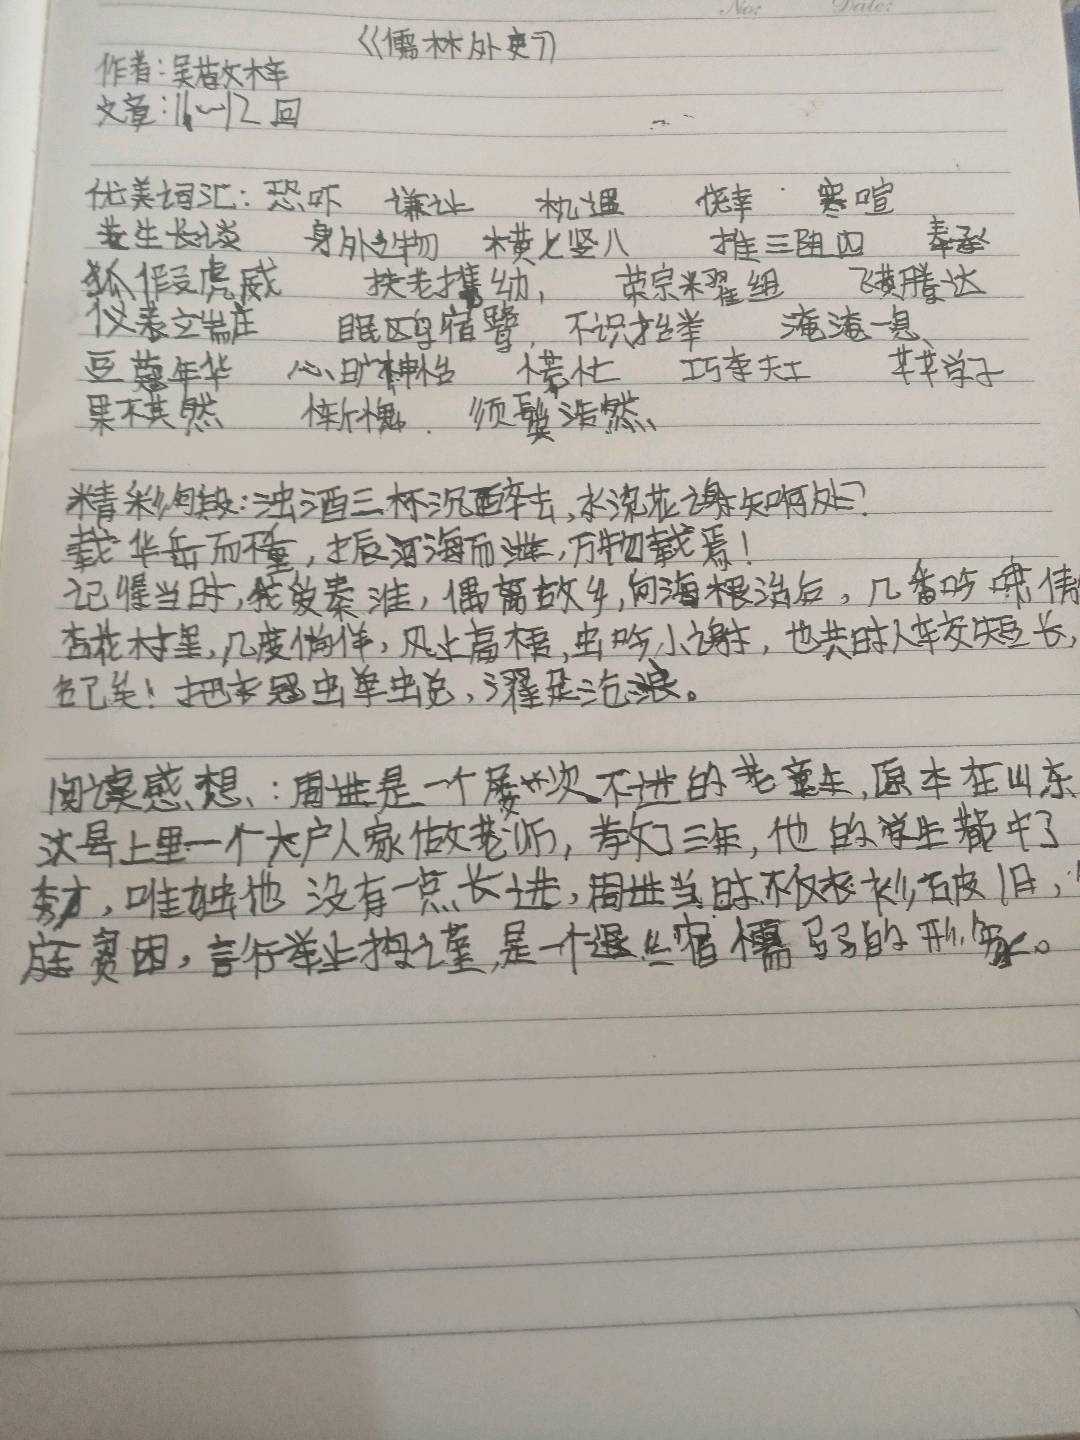 No: Date:
《儒林外吏》
作者:吴敬梓
文章:11~12回
优美词汇:恐吓 谦让 机遇 侥幸 寒喧
老生长谈 身外之物 横七竖八 推三阻四 奉承
狐假虎威 扶老携幼, 荣宗耀组 飞黄腾达
仪表立端庄 眠鸥宿鹭, 不识抬举 淹淹一息
豆蔻年华 心旷神怡 慌忙 巧李夫工 芊芊学子
果不其然 惭愧. 须鬓浩然
精彩句段:浊酒三杯沉醉去,水流花谢知何处?
载华岳而不重,振河海而泄,万物载焉!
记得当时,我爱秦淮,偶离故乡,向海根冶后,几番吟啸
杏花村里,几度徜徉,风止高梧,虫吟小谢,也共时人较短长,
已矣!把衣冠虫单虫兑,濯足沧浪。
阅读感想:周进是一个屡次不进的老童生,原本在山东
汶县上里一个大户人家做老师,教了三年,他的学生都中了
秀才,唯独他没有一点长进,周进当时不仅衣衫破旧,
庭贫困,言行举止拘谨,是一个迟丝宿儒的形象。